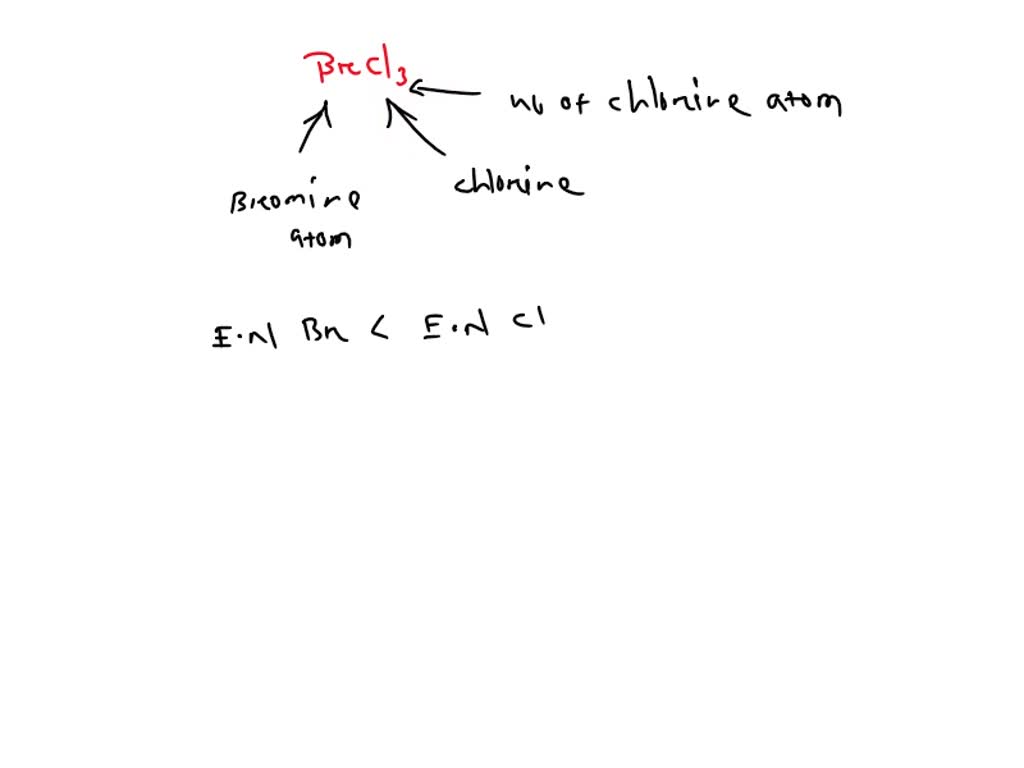 BrCl3
no of chlorine atom
chlorine
Bromine
atom
E.N Br < E.N Cl